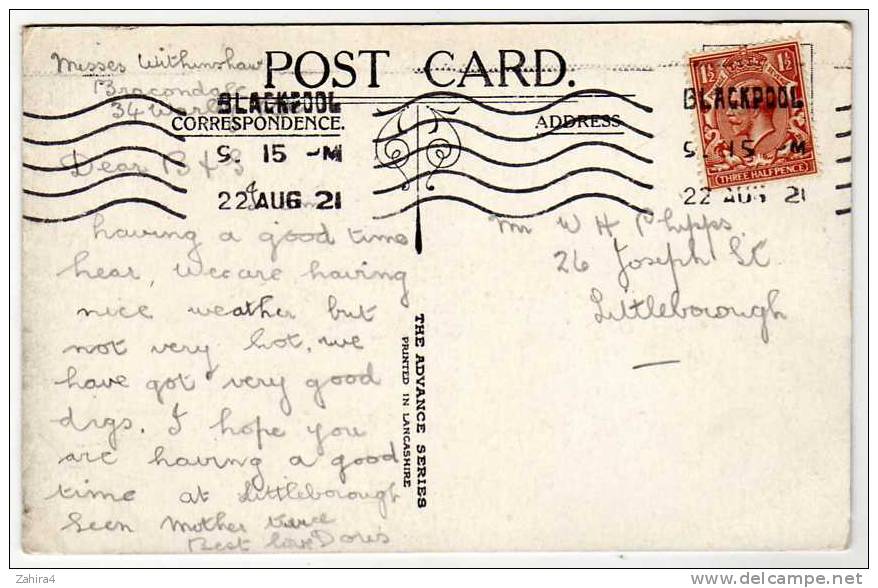 Misses Withinshaw
Bracondale
34 War
POST CARD.
BLACKPOOL
9. 15 -M
22 AUG 21
CORRESPONDENCE.
ADDRESS
BLACKPOOL
9. 15 -M
22 AUG 21
THREE HALFPENCE
1½ 1½
Dear B & G
I am
having a good time
hear, We are having
nice weather but
not very hot, we
have got very good
digs. I hope you
are having a good
time at Littleborough
Seen Mother twice
Best love Doris
Mr W H Phipps.
26 Joseph St
Littleborough
THE ADVANCE SERIES
PRINTED IN LANCASHIRE
Zahira4
www.delcampe.net